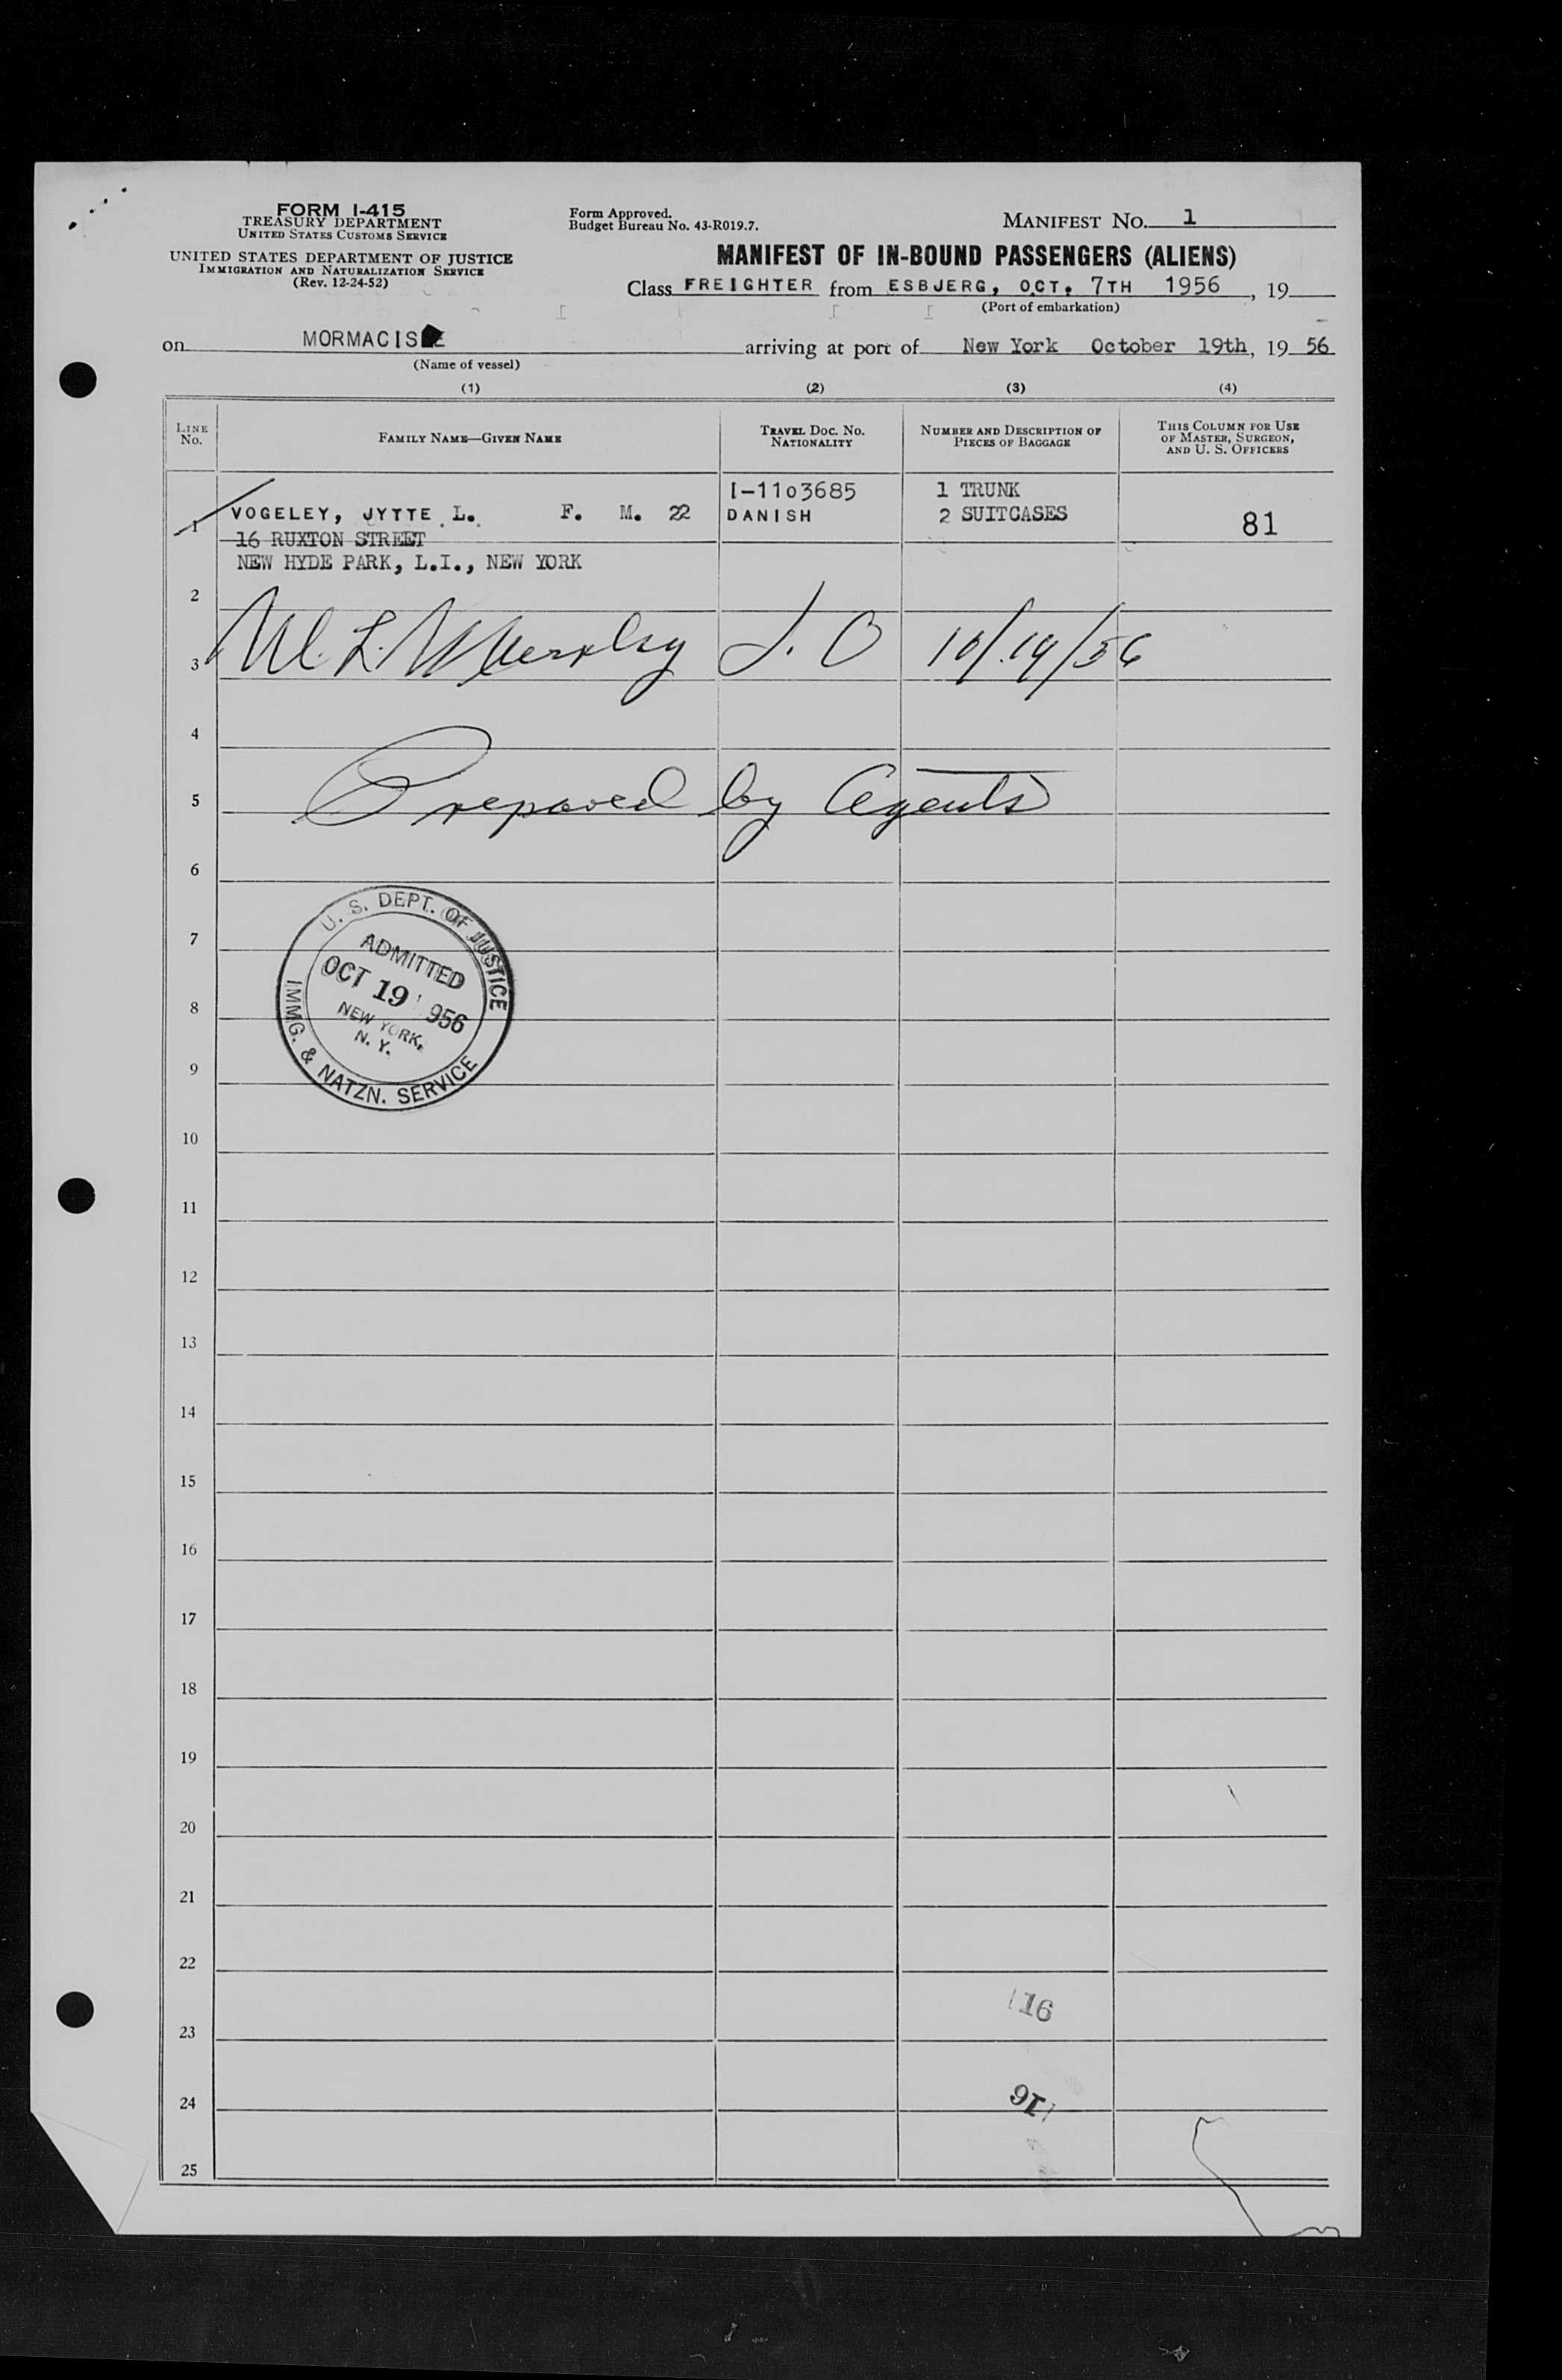 FORM I-415
TREASURY DEPARTMENT
UNITED STATES CUSTOMS SERVICE
UNITED STATES DEPARTMENT OF JUSTICE
IMMIGRATION AND NATURALIZATION SERVICE
(Rev. 12-24-52)
Form Approved.
Budget Bureau No. 43-R019.7.
MANIFEST No. 1
MANIFEST OF IN-BOUND PASSENGERS (ALIENS)
Class FREIGHTER from ESBJERG, OCT. 7TH 1956, 19
(Port of embarkation)
on MORMACISLE arriving at port of New York October 19th, 19 56
(Name of vessel)
(1) (2) (3) (4)
LINE No. FAMILY NAME—GIVEN NAME TRAVEL DOC. NO. NATIONALITY NUMBER AND DESCRIPTION OF PIECES OF BAGGAGE THIS COLUMN FOR USE OF MASTER, SURGEON, AND U. S. OFFICERS
I-1103685 1 TRUNK
1 VOGELEY, JYTTE L. F. M. 22 DANISH 2 SUITCASES 81
16 RUXTON STREET
NEW HYDE PARK, L.I., NEW YORK
2
3 10/19/56
4
5 Prepared by Agents
6
U. S. DEPT. OF JUSTICE
7
ADMITTED
OCT 19 1956
8
NEW YORK,
N. Y.
9
IMMG. & NATZN. SERVICE
10
11
12
13
14
15
16
17
18
19
20
21
22
116
23
24
116
25